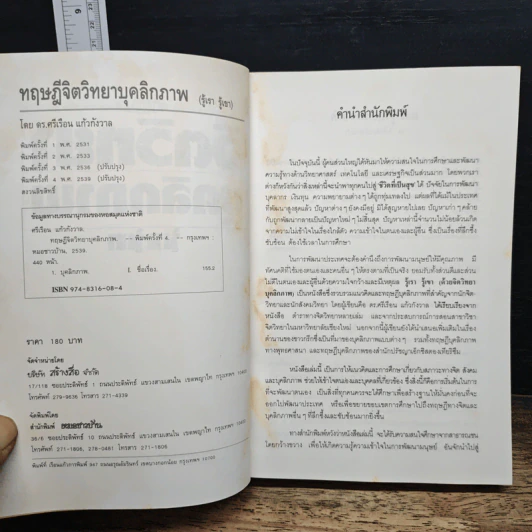 6
ทฤษฎีจิตวิทยาบุคลิกภาพ (รู้เรา รู้เขา)
โดย ดร.ศรีเรือน แก้วกังวาล
พิมพ์ครั้งที่ 1 พ.ศ. 2531
พิมพ์ครั้งที่ 2 พ.ศ. 2533
พิมพ์ครั้งที่ 3 พ.ศ. 2536 (ปรับปรุง)
พิมพ์ครั้งที่ 4 พ.ศ. 2539 (ปรับปรุง)
สงวนลิขสิทธิ์
ข้อมูลทางบรรณานุกรมของหอสมุดแห่งชาติ
ศรีเรือน แก้วกังวาล.
ทฤษฎีจิตวิทยาบุคลิกภาพ. -- พิมพ์ครั้งที่ 4. -- กรุงเทพฯ :
หมอชาวบ้าน, 2539.
440 หน้า.
1. บุคลิกภาพ. I. ชื่อเรื่อง.
155.2
ISBN 974-8316-08-4
ราคา 180 บาท
จัดจำหน่ายโดย
บริษัท สร้างสื่อ จำกัด
17/118 ซอยประดิพัทธ์ 1 ถนนประดิพัทธ์ แขวงสามเสนใน เขตพญาไท กรุงเทพฯ
โทรศัพท์ 279-9636 โทรสาร 271-4339
จัดพิมพ์โดย
สำนักพิมพ์ หมอชาวบ้าน
36/6 ซอยประดิพัทธ์ 10 ถนนประดิพัทธ์ แขวงสามเสนใน เขตพญาไท กรุงเทพฯ
โทรศัพท์ 271-1806, 278-0461 โทรสาร 271-1806
พิมพ์ที่ เรือนแก้วการพิมพ์ 947 ถนนอรุณอัมรินทร์ เขตบางกอกน้อย กรุงเทพฯ 10700
คำนำสำนักพิมพ์
ในปัจจุบันนี้ ผู้คนส่วนใหญ่ได้หันมาให้ความสนใจในการศึกษาและพัฒนา
ความรู้ทางด้านวิทยาศาสตร์ เทคโนโลยี และเศรษฐกิจเป็นส่วนมาก โดยพวกเรา
ต่างก็หวังกันว่าสิ่งเหล่านี้จะนำพาทุกคนไปสู่ "ชีวิตที่เป็นสุข" ได้ ปัจจัยในการพัฒนา
บุคลากร เงินทุน ความพยายามต่าง ๆ ได้ถูกทุ่มเทลงไป แต่ผลที่ได้แม้ในประเทศ
ที่พัฒนาสูงสุดแล้ว ปัญหาต่าง ๆ ยังคงมีอยู่ มิได้สูญหายไปเลย ปัญหาเก่า ๆ คล้าย
กับถูกพัฒนากลายเป็นปัญหาใหม่ ๆ ไม่สิ้นสุด ปัญหาเหล่านี้จำนวนไม่น้อยล้วนเกิด
จากความไม่เข้าใจในเรื่องใกล้ตัว ความเข้าใจในตนเองและผู้อื่น ซึ่งเป็นเรื่องที่ลึกซึ้ง
ซับซ้อน ต้องใช้เวลาในการศึกษา
ในการพัฒนาประเทศคงจะต้องคำนึงถึงการพัฒนามนุษย์ให้มีคุณภาพ มี
ทัศนคติที่ใช้มองตนเองและคนอื่น ๆ ให้ตรงตามที่เป็นจริง ยอมรับทั้งส่วนดีและส่วน
ไม่ดีในตนเองและผู้อื่นด้วยความใจกว้างและมีเหตุผล รู้เรา รู้เขา (ด้วยจิตวิทยา
บุคลิกภาพ) เป็นหนังสือซึ่งรวบรวมแนวคิดและทฤษฎีบุคลิกภาพที่สำคัญจากนักจิต-
วิทยาและนักสังคมวิทยา โดยผู้เขียนคือ ดร.ศรีเรือน แก้วกังวาล ได้เรียบเรียงจาก
หนังสือ ตำราทางจิตวิทยาหลายเล่ม และจากประสบการณ์การสอนสาขาวิชา
จิตวิทยาในมหาวิทยาลัยเชียงใหม่ นอกจากนี้ผู้เขียนยังได้นำเสนอเพิ่มเติมในเรื่อง
ตำนานของชาวกรีกซึ่งเป็นที่มาของบุคลิกภาพในแบบต่าง ๆ รวมทั้งทฤษฎีบุคลิกภาพ
ทางพุทธศาสนา และทฤษฎีบุคลิกภาพของสำนักปรัชญาเอ็กซิสตองเชียริซึ่ม
หนังสือเล่มนี้ เป็นการให้แนวคิดและการศึกษาเกี่ยวกับสภาวะทางจิต สังคม
และบุคลิกภาพ ช่วยให้เข้าใจตนเองและบุคคลที่เกี่ยวข้อง ซึ่งสิ่งนี้ก็คือการเริ่มต้นในการ
ที่จะพัฒนาตนเอง เป็นสิ่งที่ทุกคนควรจะศึกษาเพื่อสร้างฐานให้มั่นคงก่อนที่จะ
ออกไปพัฒนาประเทศ หรือเพื่อขยายขอบเขตการศึกษาไปถึงทฤษฎีทางจิตและ
บุคลิกภาพอื่น ๆ ที่ลึกซึ้งและซับซ้อนมากยิ่งขึ้น
ทางสำนักพิมพ์หวังว่าหนังสือเล่มนี้ จะได้รับความสนใจศึกษาจากสาธารณชน
โดยกว้างขวาง เพื่อให้เกิดความรู้ความเข้าใจในการพัฒนามนุษย์ อันจักนำไปสู่